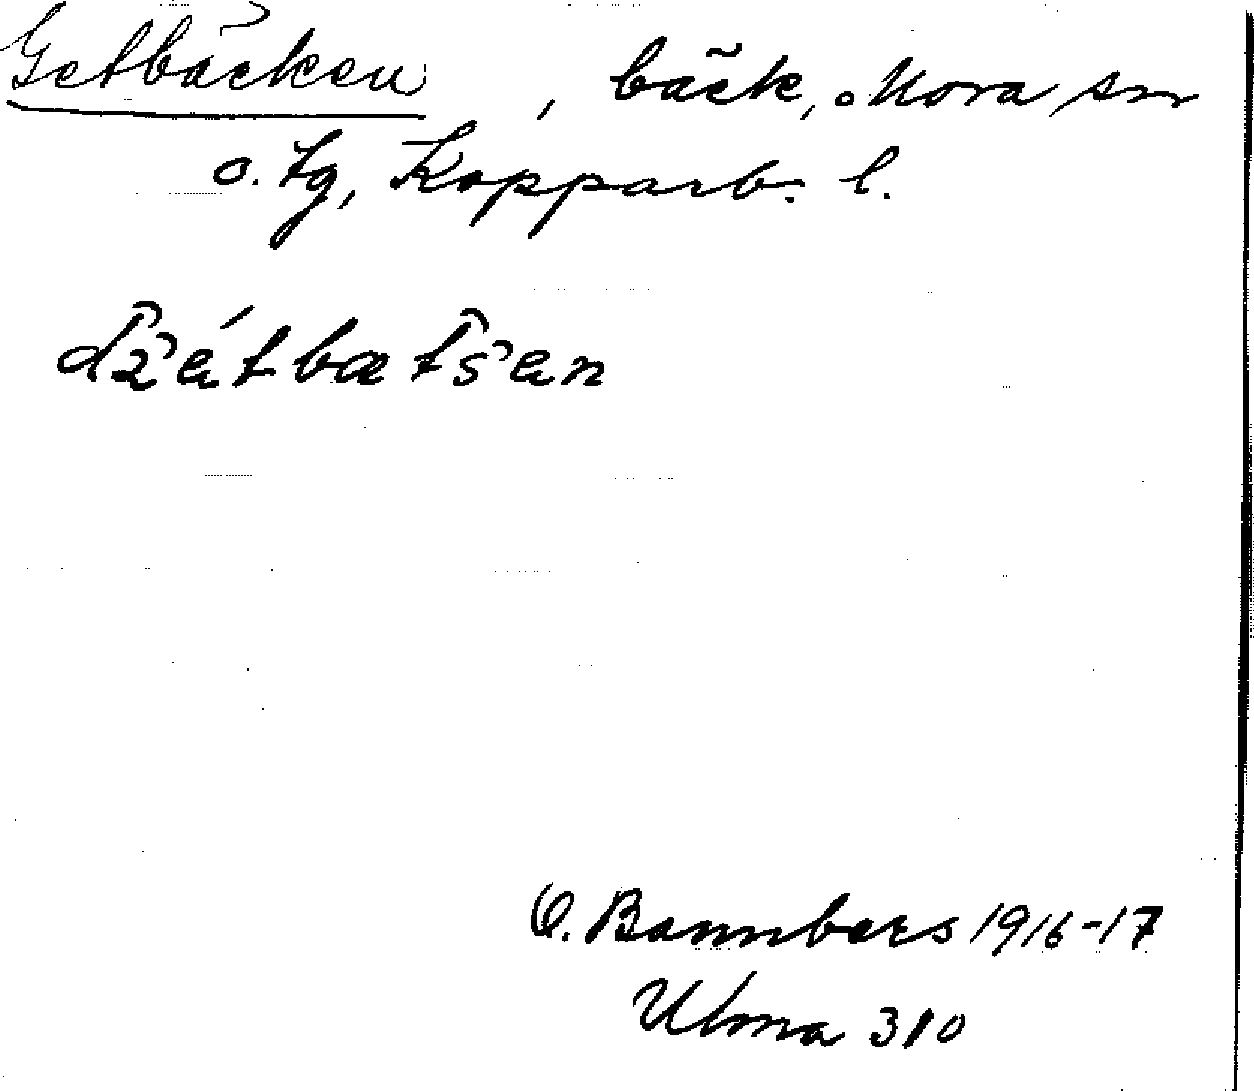 Getbäcken, bäck, Mora sn
o. tg, Kopparb. l.
dẑétbætŝen
O. Bannbers 1916-17
Ulma 310